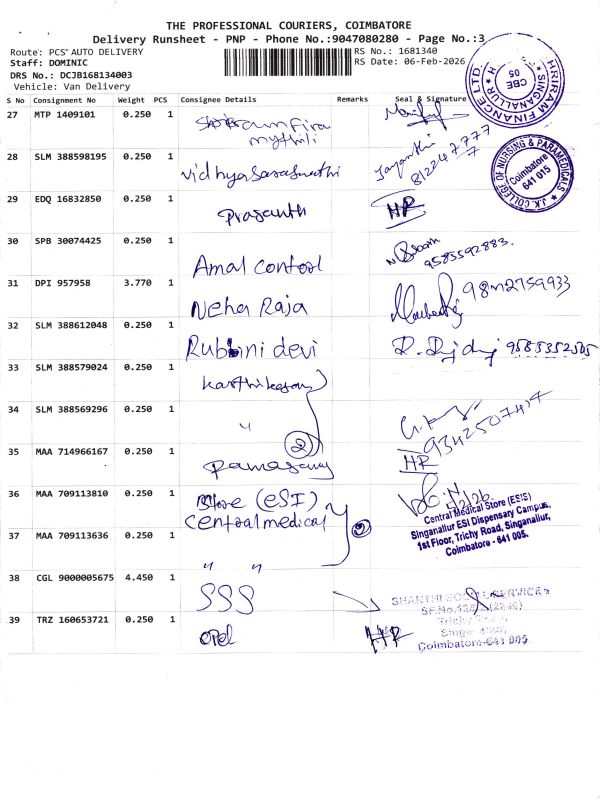 THE PROFESSIONAL COURIERS, COIMBATORE
Delivery Runsheet - PNP - Phone No.:9047080280 - Page No.:3
Route: PCS AUTO DELIVERY
RS No.: 1681340
Staff: DOMINIC
RS Date: 06-Feb-2026
DRS No.: DCJB168134003
Vehicle: Van Delivery
S No Consignment No Weight PCS Consignee Details Remarks Seal & Signature
27 MTP 1409101 0.250 1
mythili
SHRIRAM FINANCE LTD.
SINGANALLUR
CBE
05
28 SLM 388598195 0.250 1 Vidhyasaraswathi Jayanthi
J.K. COLLEGE OF NURSING & PARAMEDICALS
Coimbatore
641 015
29 EDQ 16832850 0.250 1 Prasanth HR
30 SPB 30074425 0.250 1 Amal Control 9585592883.
31 DPI 957958 3.770 1 Neha Raja
32 SLM 388612048 0.250 1 Rubini devi
33 SLM 388579024 0.250 1 Karthikeyan
34 SLM 388569296 0.250 1 "
9342507414
2
35 MAA 714966167 0.250 1 Ramasamy HR
36 MAA 709113810 0.250 1 Store (ESI)
Central medical
2
Central Medical Store (ESIS)
Singanallur ESI Dispensary Campus,
1st Floor, Trichy Road, Singanallur,
Coimbatore - 641 005.
37 MAA 709113636 0.250 1 " "
38 CGL 9000005675 4.450 1 SSS
SHANTHI SOCIAL SERVICES
Coimbatore-641 005
39 TRZ 160653721 0.250 1 Opel HR